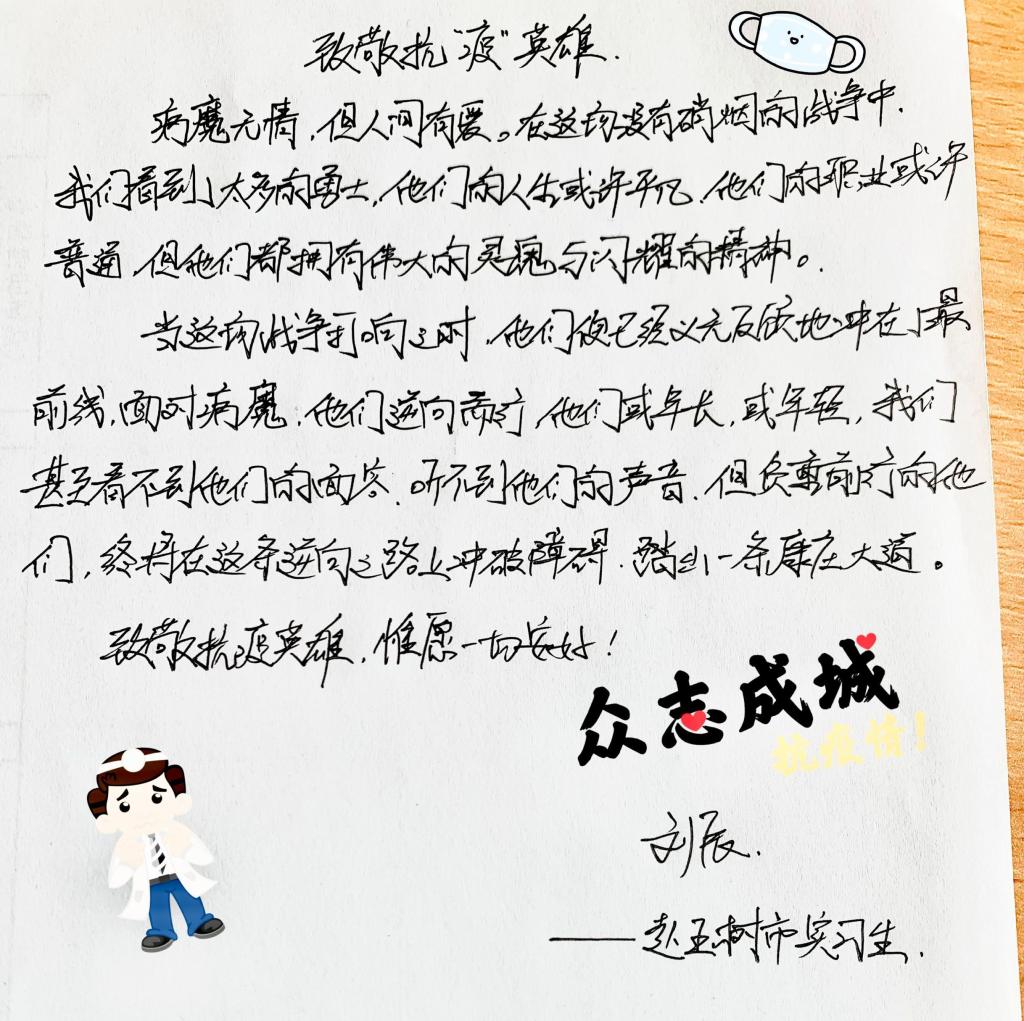 致敬抗“疫”英雄.
病魔无情,但人间有爱。在这场没有硝烟的战争中,
我们看到了太多的勇士,他们的人生或许平凡,他们的职业或许
普通,但他们都拥有伟大的灵魂与闪耀的精神。
当这场战争打响之时,他们便已经义无反顾地冲在了最
前线,面对病魔,他们逆向而行,他们或年长,或年轻,我们
甚至看不到他们的面容,听不到他们的声音,但负重前行的他
们,终将在这条逆向之路上冲破障碍,踏出一条康庄大道。
致敬抗疫英雄,惟愿一切安好!
众志成城
抗疫情!
刘辰.
——赴玉树市实习生.